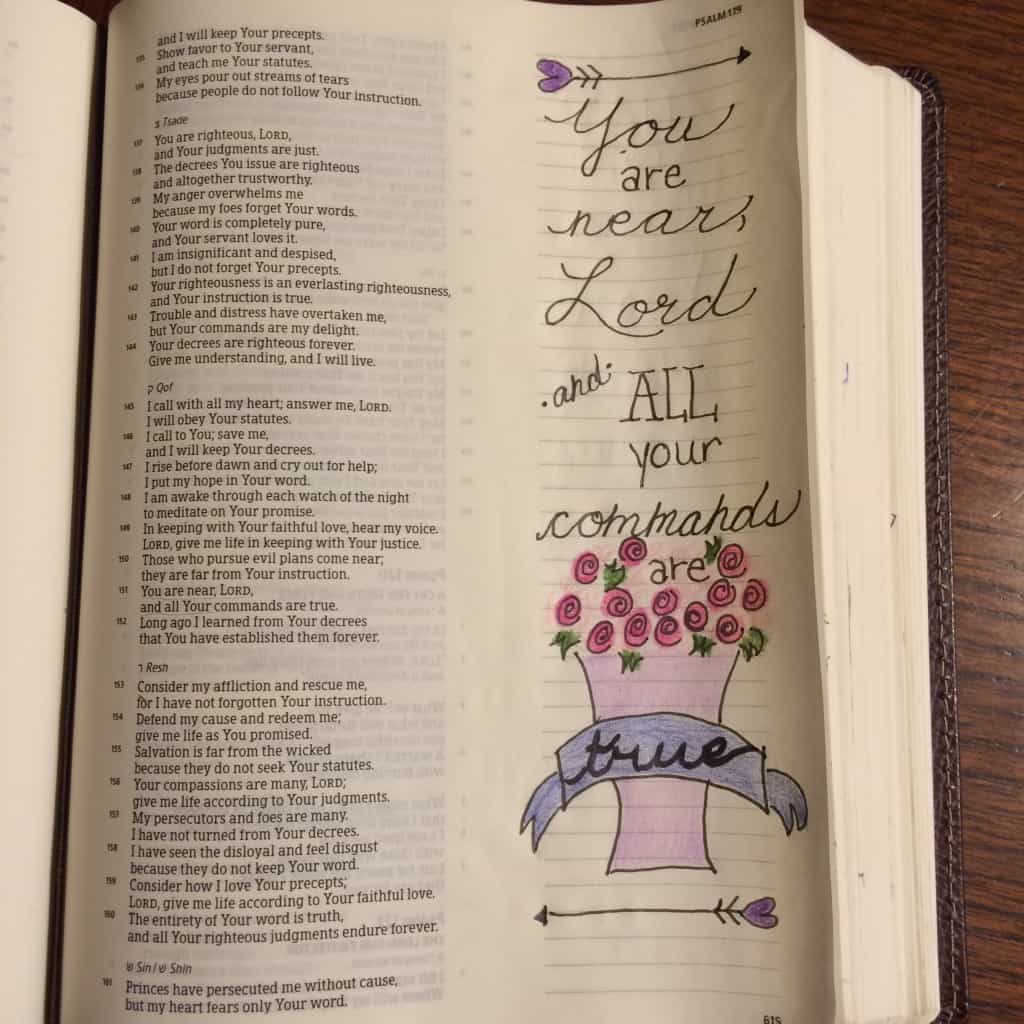 PSALM 119
and I will keep Your precepts.
135 Show favor to Your servant,
and teach me Your statutes.
136 My eyes pour out streams of tears
because people do not follow Your instruction.
צ Tsade
137 You are righteous, LORD,
and Your judgments are just.
138 The decrees You issue are righteous
and altogether trustworthy.
139 My anger overwhelms me
because my foes forget Your words.
140 Your word is completely pure,
and Your servant loves it.
141 I am insignificant and despised,
but I do not forget Your precepts.
142 Your righteousness is an everlasting righteousness,
and Your instruction is true.
143 Trouble and distress have overtaken me,
but Your commands are my delight.
144 Your decrees are righteous forever.
Give me understanding, and I will live.
ק Qof
145 I call with all my heart; answer me, LORD.
I will obey Your statutes.
146 I call to You; save me,
and I will keep Your decrees.
147 I rise before dawn and cry out for help;
I put my hope in Your word.
148 I am awake through each watch of the night
to meditate on Your promise.
149 In keeping with Your faithful love, hear my voice.
LORD, give me life in keeping with Your justice.
150 Those who pursue evil plans come near;
they are far from Your instruction.
151 You are near, LORD,
and all Your commands are true.
152 Long ago I learned from Your decrees
that You have established them forever.
ר Resh
153 Consider my affliction and rescue me,
for I have not forgotten Your instruction.
154 Defend my cause and redeem me;
give me life as You promised.
155 Salvation is far from the wicked
because they do not seek Your statutes.
156 Your compassions are many, LORD;
give me life according to Your judgments.
157 My persecutors and foes are many.
I have not turned from Your decrees.
158 I have seen the disloyal and feel disgust
because they do not keep Your word.
159 Consider how I love Your precepts;
LORD, give me life according to Your faithful love.
160 The entirety of Your word is truth,
and all Your righteous judgments endure forever.
שׂ Sin / שׁ Shin
161 Princes have persecuted me without cause,
but my heart fears only Your word.
You
are
near,
Lord
and ALL
your
commands
are
true
619